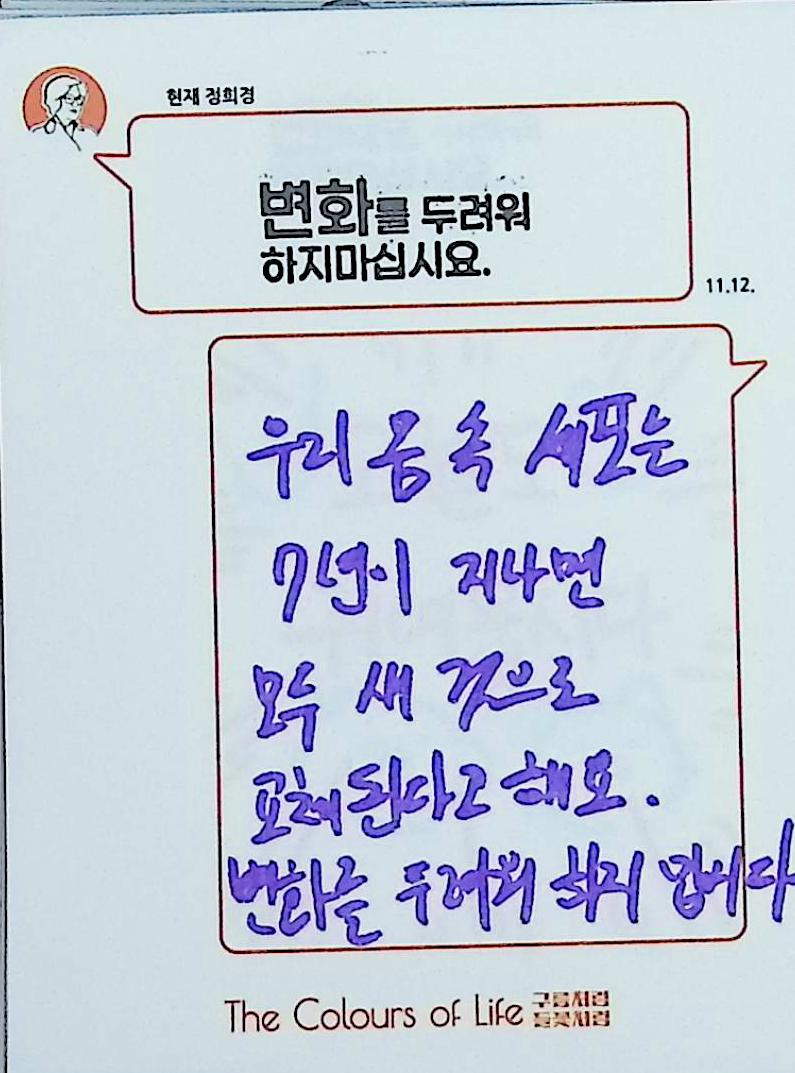 현재 정희경
변화를 두려워
하지마십시요.
11.12.
우리 몸 속 세포는
7년이 지나면
모두 새 것으로
교체된다고 해요.
변화를 두려워 하지 맙시다
The Colours of Life 구름처럼
들꽃처럼